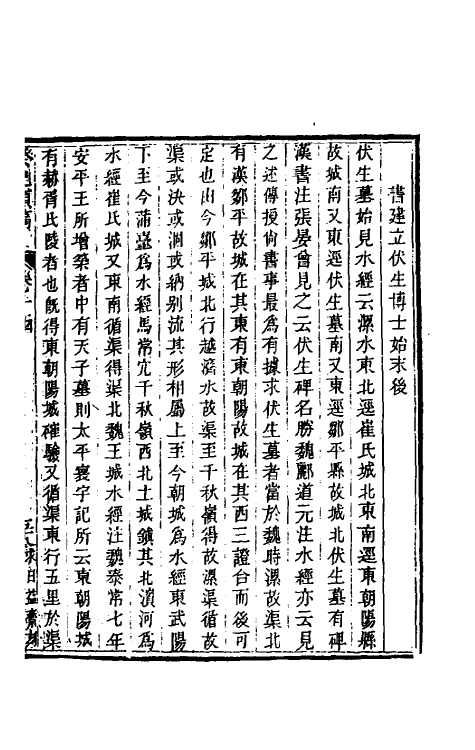 書建立伏生博士始末後
伏生墓始見水經云漯水東北逕崔氏城北東南逕東朝陽縣
故城南又東逕伏生墓南又東逕鄒平縣故城北伏生墓有碑
漢書注張晏曾見之云伏生碑名勝魏酈道元注水經亦云見
之述傳授尙書事最爲有據求伏生墓者當於魏時漯故渠北
有漢鄒平故城在其東有東朝陽故城在其西三證合而後可
定也由今鄒平城北行越濟水故渠至千秋嶺得故漯渠循故
渠或決或涸或納別流其形相屬上至今朝城爲水經東武陽
下至今蒲臺爲水經馬常坈千秋嶺西北土城鎭其北瀆河爲
水經崔氏城又東南循渠得渠北魏王城水經注魏泰常七年
安平王所增築者中有天子墓則太平寰宇記所云東朝陽城
有赫胥氏陵者也旣得東朝陽城確驗又循渠東行五里於渠
癸巳類稿 卷十四 求日益齋